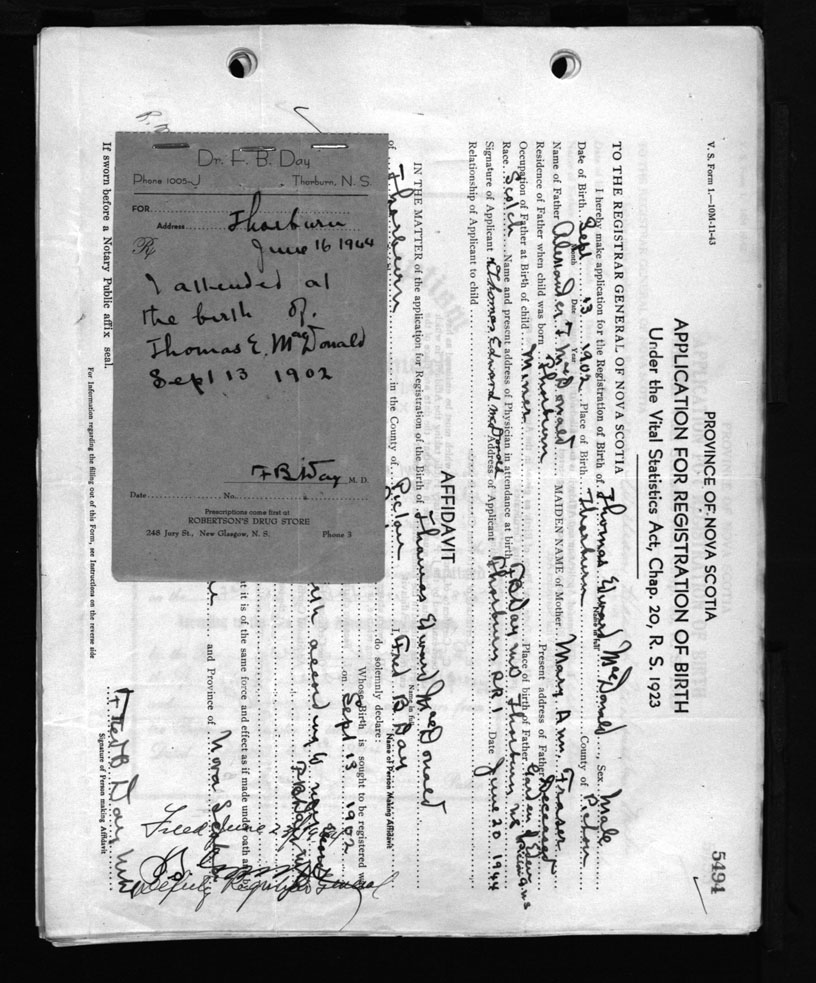 V. S. Form 1.—10M-11-43
PROVINCE OF NOVA SCOTIA
5494
APPLICATION FOR REGISTRATION OF BIRTH
Under the Vital Statistics Act, Chap. 20, R. S. 1923
TO THE REGISTRAR GENERAL OF NOVA SCOTIA
I hereby make application for the Registration of Birth of Thomas Edward MacDonald, Sex Male
Name in full
Date of Birth Sept 13 1902 Place of Birth Thorburn County of Pictou
Month Date Year
Name of Father Alexander F MacDonald MAIDEN NAME of Mother Mary Ann Fraser
Residence of Father when child was born Thorburn Present address of Father Deceased
Occupation of Father at Birth of child Miner Place of birth of Father Garden of Eden Pictou Co NS
Race Scotch Name and present address of Physician in attendance at birth F B Day MD Thorburn NS
Signature of Applicant Thomas Edward McDonald Address of Applicant Thorburn RR1 Date June 20 1944
Relationship of Applicant to child
AFFIDAVIT
IN THE MATTER of the application for Registration of the Birth of Thomas Edward MacDonald
Name in full
I, Fred B. Day
Name of Person Making Affidavit
of Thorburn in the County of Pictou do solemnly declare:
Whose Birth is sought to be registered w
on Sept 13 1902
it is of the same force and effect as if made under oath a
and Province of Nova Scotia
Filed June 23 1944
Deputy Registrar General
Fred B Day MD
Signature of Person making Affidavit
If sworn before a Notary Public affix seal.
For Information regarding the filling out of this Form, see Instructions on the reverse side
Dr. F. B. Day
Phone 1005-J Thorburn, N. S.
FOR
Address Thorburn
R June 16 1944
I attended at
the birth of.
Thomas E. MacDonald
Sept 13 1902
F B Day M. D.
Date No.
Prescriptions come first at
ROBERTSON'S DRUG STORE
248 Jury St., New Glasgow, N. S. Phone 3